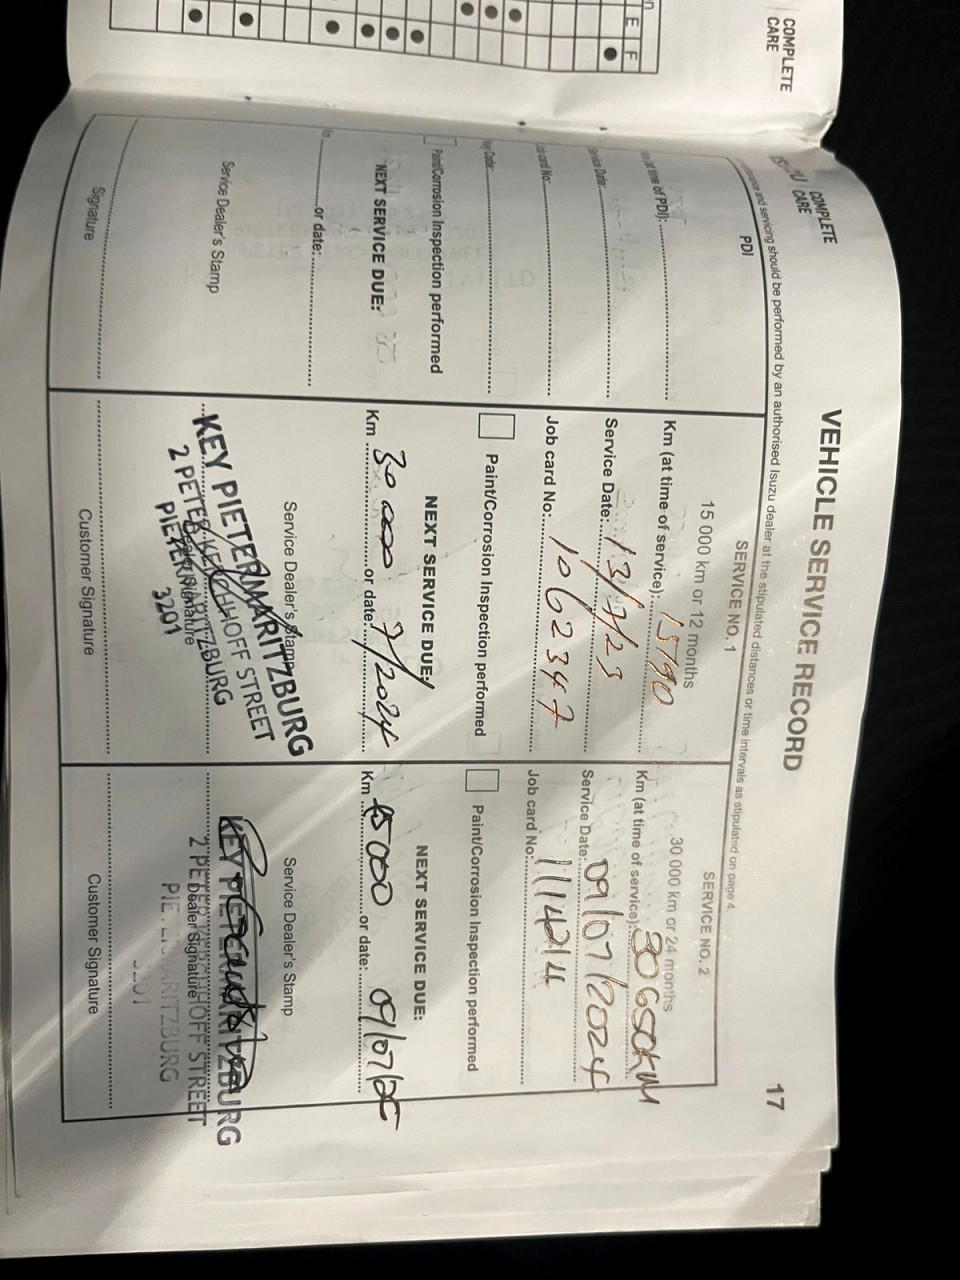 COMPLETE
CARE
E F
COMPLETE
CARE
VEHICLE SERVICE RECORD
17
and servicing should be performed by an authorised Isuzu dealer at the stipulated distances or time intervals as stipulated on page 4.
PDI
(at time of PDI):
Service Date:
Job card No:
Key Code:
Paint/Corrosion Inspection performed
NEXT SERVICE DUE:
or date:
Service Dealer's Stamp
Signature
SERVICE NO. 1
15 000 km or 12 months
Km (at time of service): 15190
Service Date: 13/7/23
Job card No: 1062347
Paint/Corrosion Inspection performed
NEXT SERVICE DUE:
Km 30 000 or date: 7/2024
Service Dealer's Stamp
KEY PIETERMARITZBURG
2 PETER KERCHHOFF STREET
PIETERMARITZBURG
3201
Dealer Signature
Customer Signature
SERVICE NO. 2
30 000 km or 24 months
Km (at time of service): 30 650KM
Service Date: 09/07/2024
Job card No: 1114214
Paint/Corrosion Inspection performed
NEXT SERVICE DUE:
Km 45 000 or date: 09/07/25
Service Dealer's Stamp
KEY PIETERMARITZBURG
2 PETER KERCHHOFF STREET
PIETERMARITZBURG
3201
Dealer Signature
Customer Signature